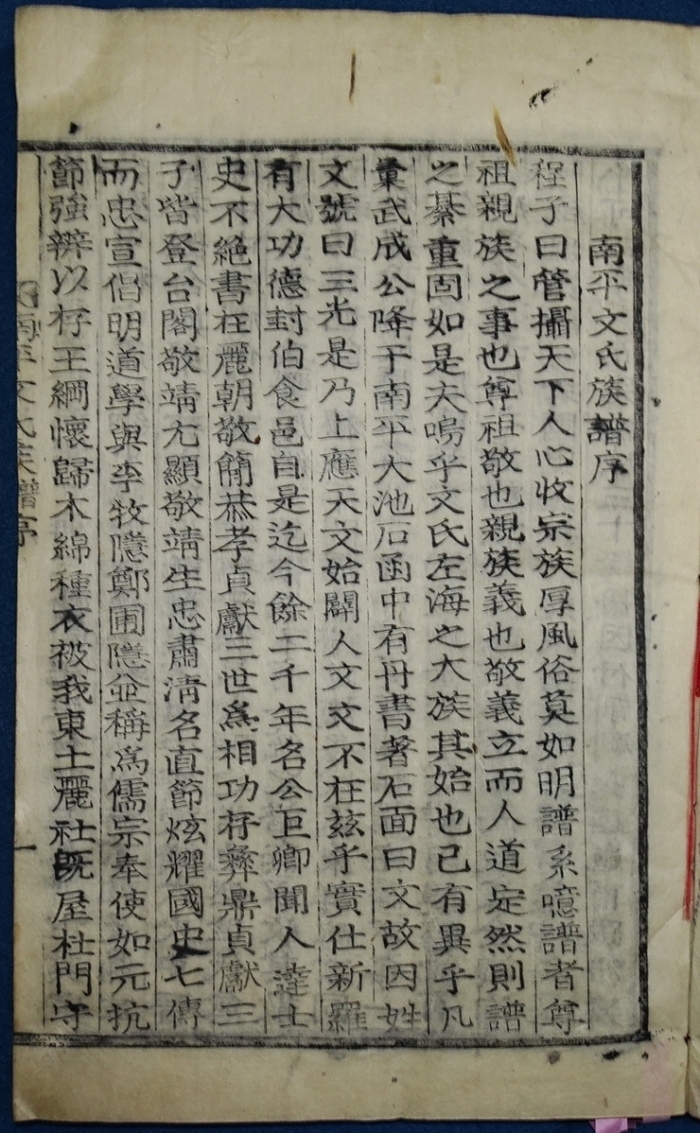 南平文氏族譜序
程子曰管攝天下人心收宗族厚風俗莫如明譜系噫譜者尊
祖親族之事也尊祖敬也親族義也敬義立而人道定然則譜
之綦重固如是夫嗚乎文氏左海之大族其始也已有異乎凡
彙武成公降于南平大池石函中有丹書著石面曰文故因姓
文號曰三光是乃上應天文始闢人文文不在玆乎實仕新羅
有大功德封伯食邑自是迄今餘二千年名公巨卿聞人達士
史不絶書在麗朝敬簡恭孝貞獻三世爲相功存彜鼎貞獻三
子皆登台閣敬靖尤顯敬靖生忠肅淸名直節炫耀國史七傳
而忠宣倡明道學與李牧隱鄭圃隱並稱爲儒宗奉使如元抗
節強辨以存王綱懷歸木綿種衣被我東土麗社旣屋杜門守
南平文氏族譜序
一